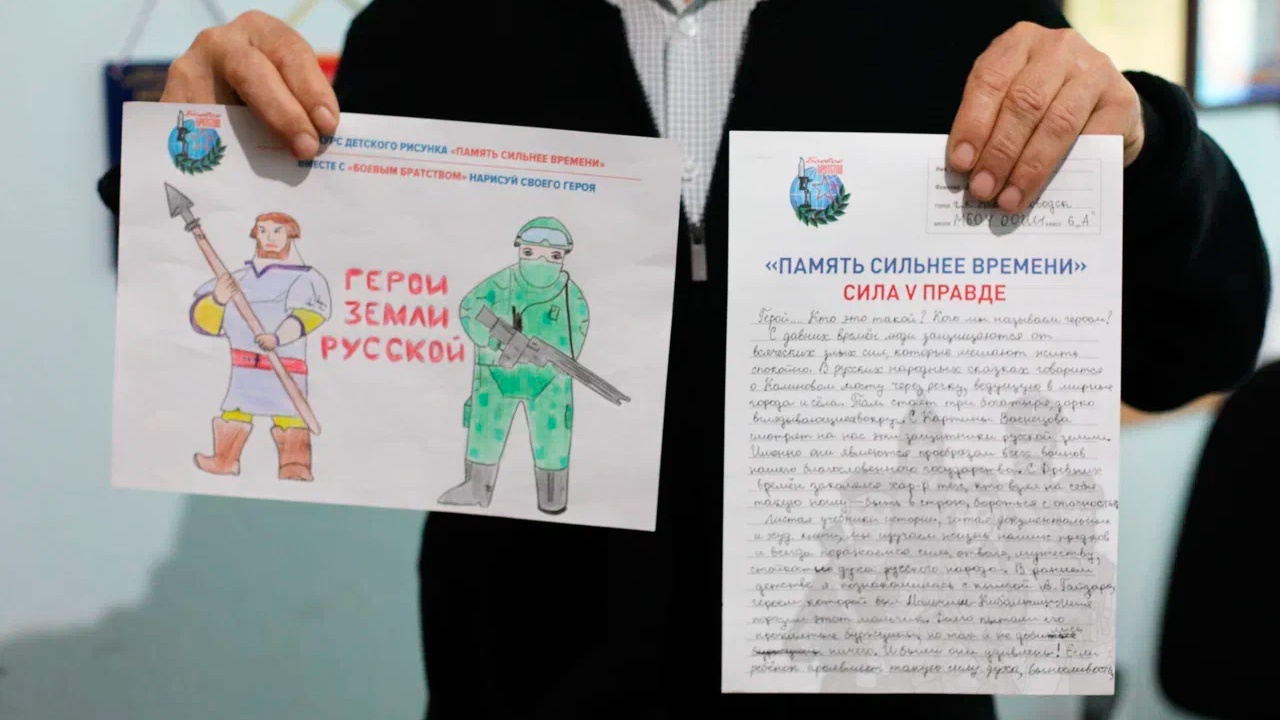 Боевое
БРАТСТВО
КУРС ДЕТСКОГО РИСУНКА «ПАМЯТЬ СИЛЬНЕЕ ВРЕМЕНИ»
ВМЕСТЕ С «БОЕВЫМ БРАТСТВОМ» НАРИСУЙ СВОЕГО ГЕРОЯ
ГЕРОИ
ЗЕМЛИ
РУССКОЙ
Боевое
БРАТСТВО
город
школа МБОУ ООШ класс 6 „А"
«ПАМЯТЬ СИЛЬНЕЕ ВРЕМЕНИ»
СИЛА V ПРАВДЕ
Герой... Кто это такой? Кого мы называем героем?
С давних времён люди защищаются от
всяческих злых сил, которые мешают жить
спокойно. В русских народных сказках говорится
о Калиновом мосту через речку, ведущую в мирные
города и сёла. Там стоят три богатыря, зорко
вглядывающиеся вокруг. С картины Васнецова
смотрят на нас эти защитники русской земли.
Именно они являются прообразам всех воинов
нашего благословенного государства. С древних
времён закалялся хар-р тех, кто взял на себя
такую ношу – быть в строю, бороться с опасностью
Листая учебники истории, читая документальные
и худ. книги, мы изучаем жизнь наших предков
и всегда поражаемся силе, отваге, мужеству,
стойкостью духа русского народа. В раннем
детстве я познакомилась с книгой А. Гайдара,
героем которой был Мальчиш-Кибальчиш. Меня
поразил этот мальчик. Долго пытали его
проклятые буржуины, но так и не добились
ничего. И были они удивлены! Если
ребёнок проявляет такую силу духа, выносливость,